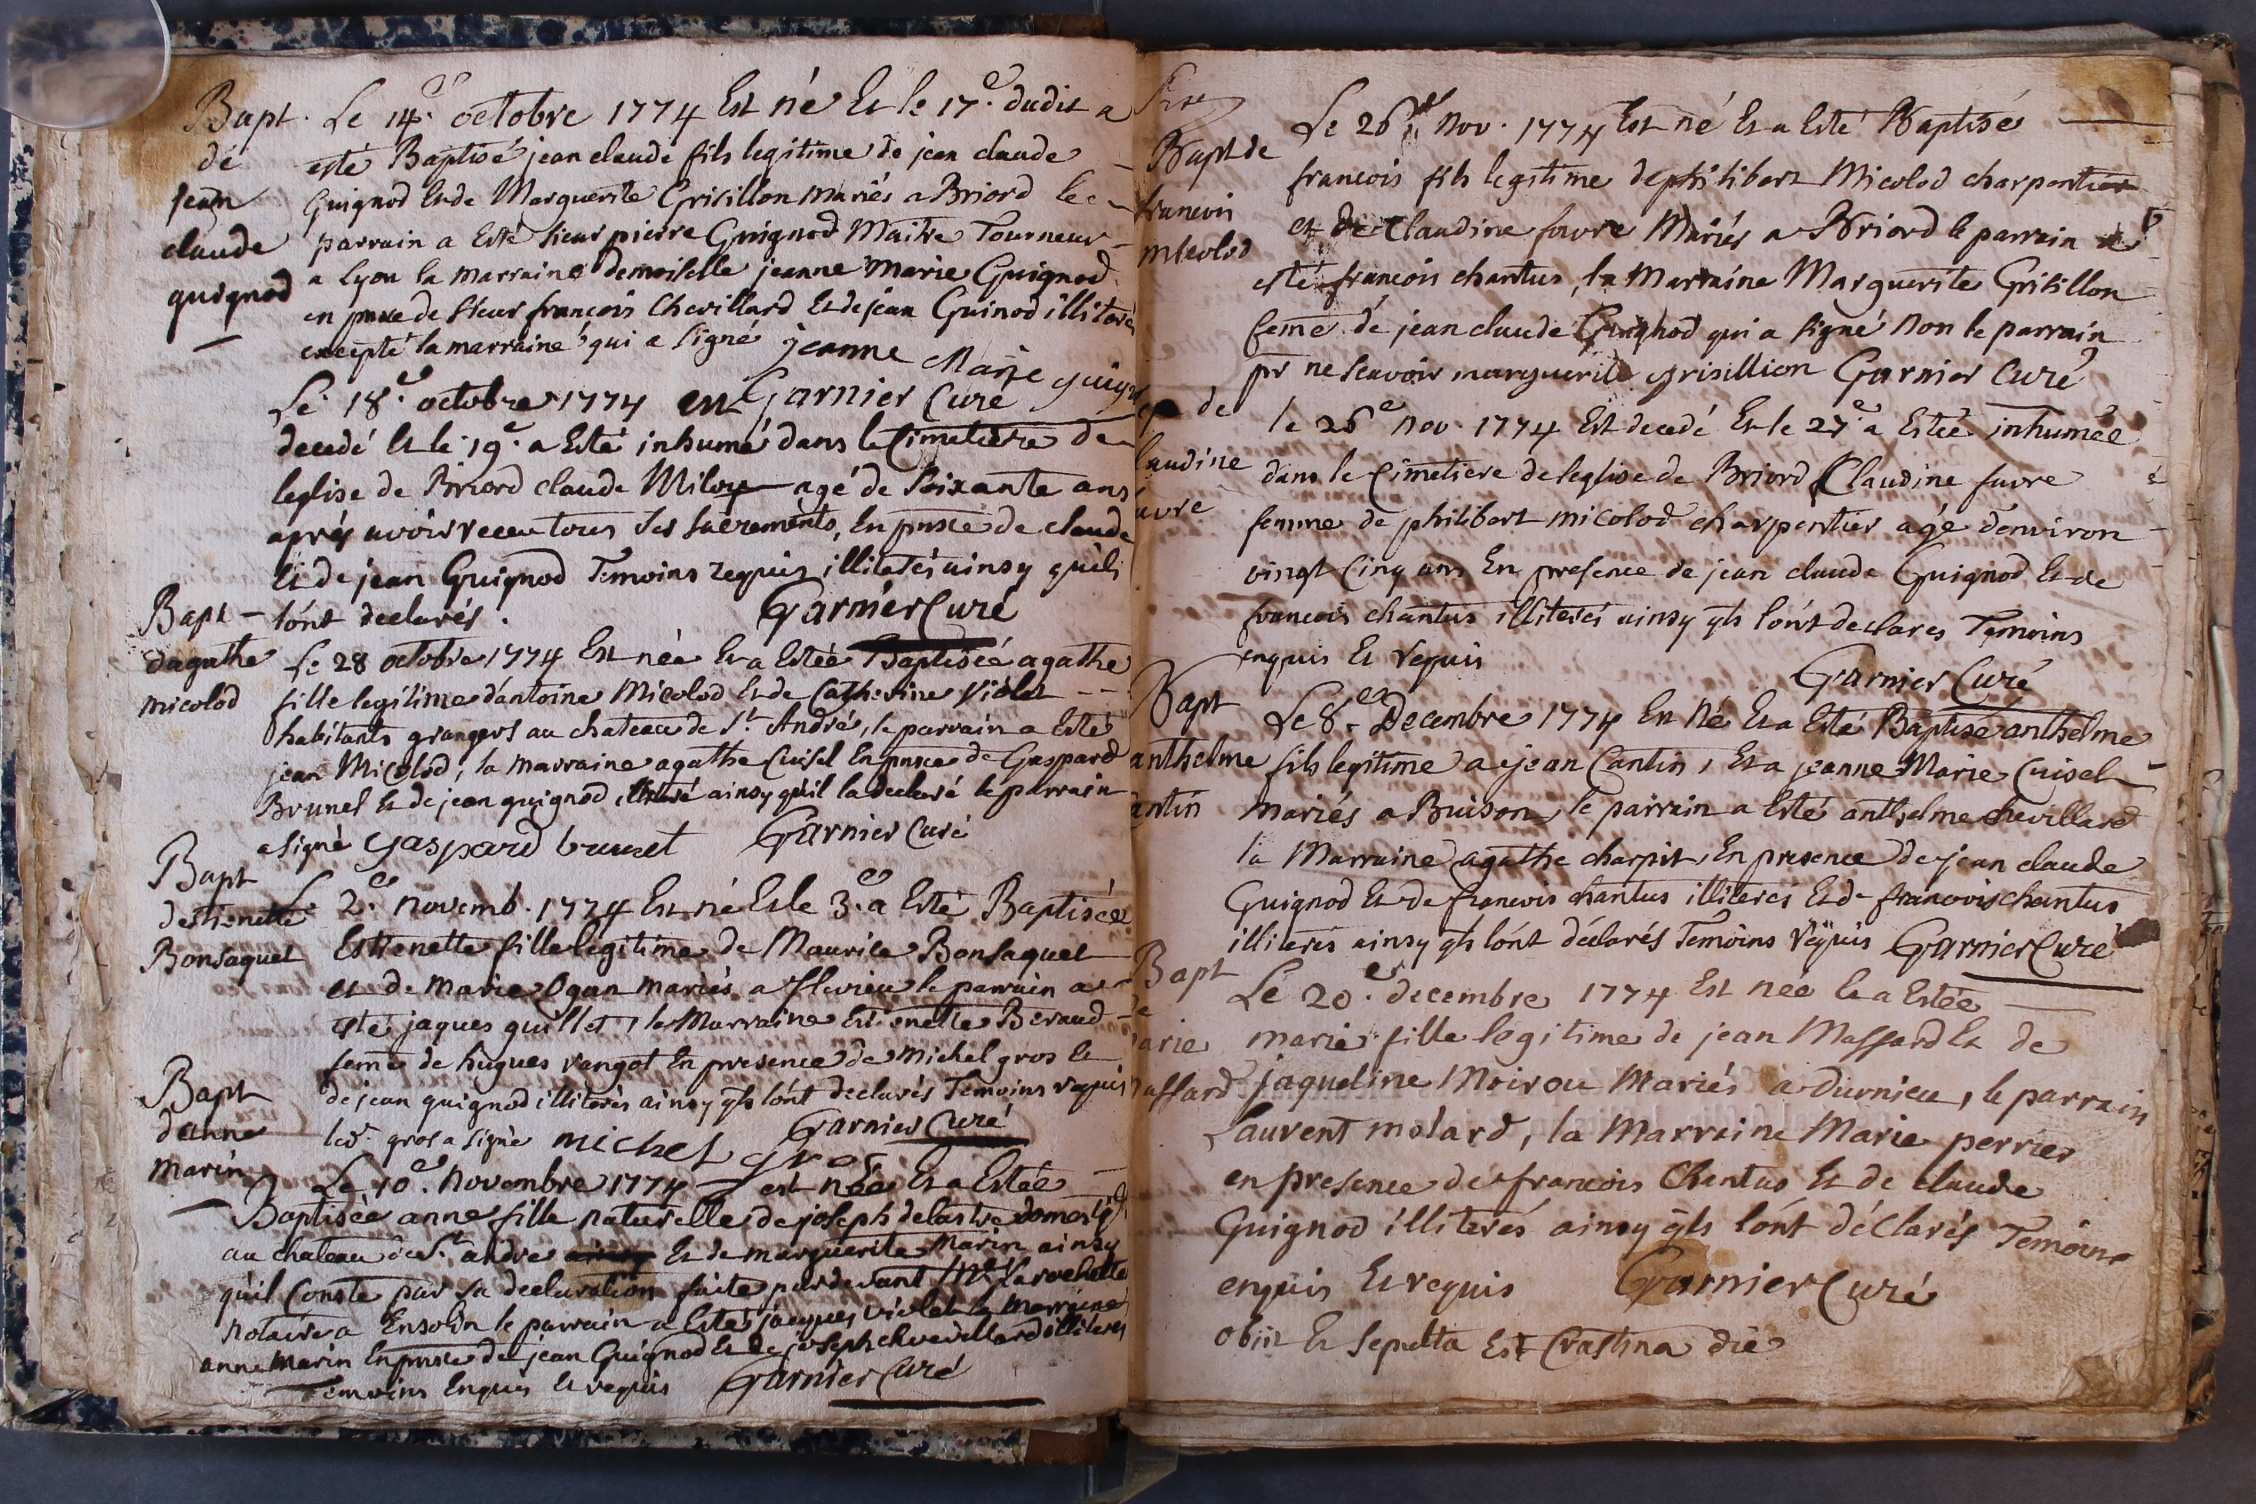 Bapt. Le 14e. octobre 1774 Est né Et le 17e. dudit a
de esté Baptisé jean claude fils legitime de jean claude
jean Guignod Et de Marguerite Grisillon mariés a Briord le
claude parrain a Esté sieur pierre Guignod Maitre Tourneur
guignod a Lyon la marraine demoiselle jeanne Marie Guignod
en pnce de sieur françois Chevillard Et de jean Guinod illiterés
excepté la marraine qui a signé jeanne Marie guignod
Le 18e. octobre 1774 est Garnier Curé
decedé Et le 19e. a Esté inhumé dans le Cimetiere de
leglise de Briord claude Miloz agé de soixante ans
aprés avoir receu tous ses sacrements, En pnsce de claude
Et de jean Guignod Temoins requis illiterés ainsy quils
lónt declarés. Garnier Curé
Bapt
dagathe Le 28 octobre 1774 Est née Et a Estée Baptisée agathe
micolod fille legitime dantoine Micolod Et de Catherine Violet
habitants grangers au chateau de St. André, le parrain a Esté
jean Micolod, la marraine agathe Cuisel En pnsce de Gaspard
Brunel Et de jean guignod, illiteré ainsy quil la declaré le parrain
a signé gaspard brunet Garnier Curé
Bapt
destienette Le 2e. novemb. 1774 Est né Et le 3e. a Esté Baptisée
Bonsaquet Estienette fille legitime de Maurice Bonsaquet
et de Marie Ogan mariés a flevieu le parrain a
esté jaques guillet, la Marraine Estienette Beraud
feme de hugues rangot En presence de Michel gros Et
de jean guignod illiterés ainsy qls lónt declarés Temoins requis
Led. gros a signé michel gros Garnier Curé
Bapt
danne
marin Le 10e. Novembre 1774 est née Et a Estée
Baptisée anne fille naturelle de joseph delastre domestiq
au chateau de St. andre Et de marguerite Marin ainsy
quil Conste par sa declaration faite pardevant Me Larochette
notaire a le parrain a Esté jacques Violet la marraine
anne Marin En pnsce de jean Guignod Et de joseph chevillard illiterés
Temoins Enquis Et requis Garnier Curé
Bapt de Le 26e Nov. 1774 Est né Et a Esté Baptisé
francois francois fils legitime de philibert Micolod charpentier
micolod et de Claudine favre Mariés a Briord le parrain a
esté francois chantus, la Marraine Marguerite Grisillon
feme de jean claude Guignod qui a signé Non le parrain
pr ne scavoir marguerite grisillion Garnier Curé
de le 26e Nov. 1774 Est decedé Et le 27e a Estée inhumée
laudine dans le Cimetiere de leglise de Briord Claudine favre
avre femme de philibert micolod charpentier agé denviron
vingt Cinq ans En presence de jean claude Guignod Et de
francois chantus illiterés ainsy qls lónt declares Temoins
enquis Et requis Garnier Curé
Bapt Le 8e. Decembre 1774 Est Né Et a Esté Baptisé anthelme
anthelme fils legitime a jean Cantin, Et a jeanne Marie Cuisel
antin mariés a Buison, le parrain a Esté anthelme chevillard
la Marraine agathe charpit, En presence de jean claude
Guignod Et de francois chantus illiterés Et de francois chantus
illiterés ainsy qls lónt déclarés Temoins requis Garnier Curé
Bapt
de Le 20e. decembre 1774 Est née Et a Estée
arie marie fille legitime de jean Massard Et de
assard jaqueline Moirou Mariés a Durnieu, le parrain
Laurent molard, la Marraine Marie perrier
en presence de francois Chantus Et de claude
Guignod illiterés ainsy qls lónt déClarés Temoins
enquis Et requis Garnier Curé
obiit Et sepulta Est Crastina die